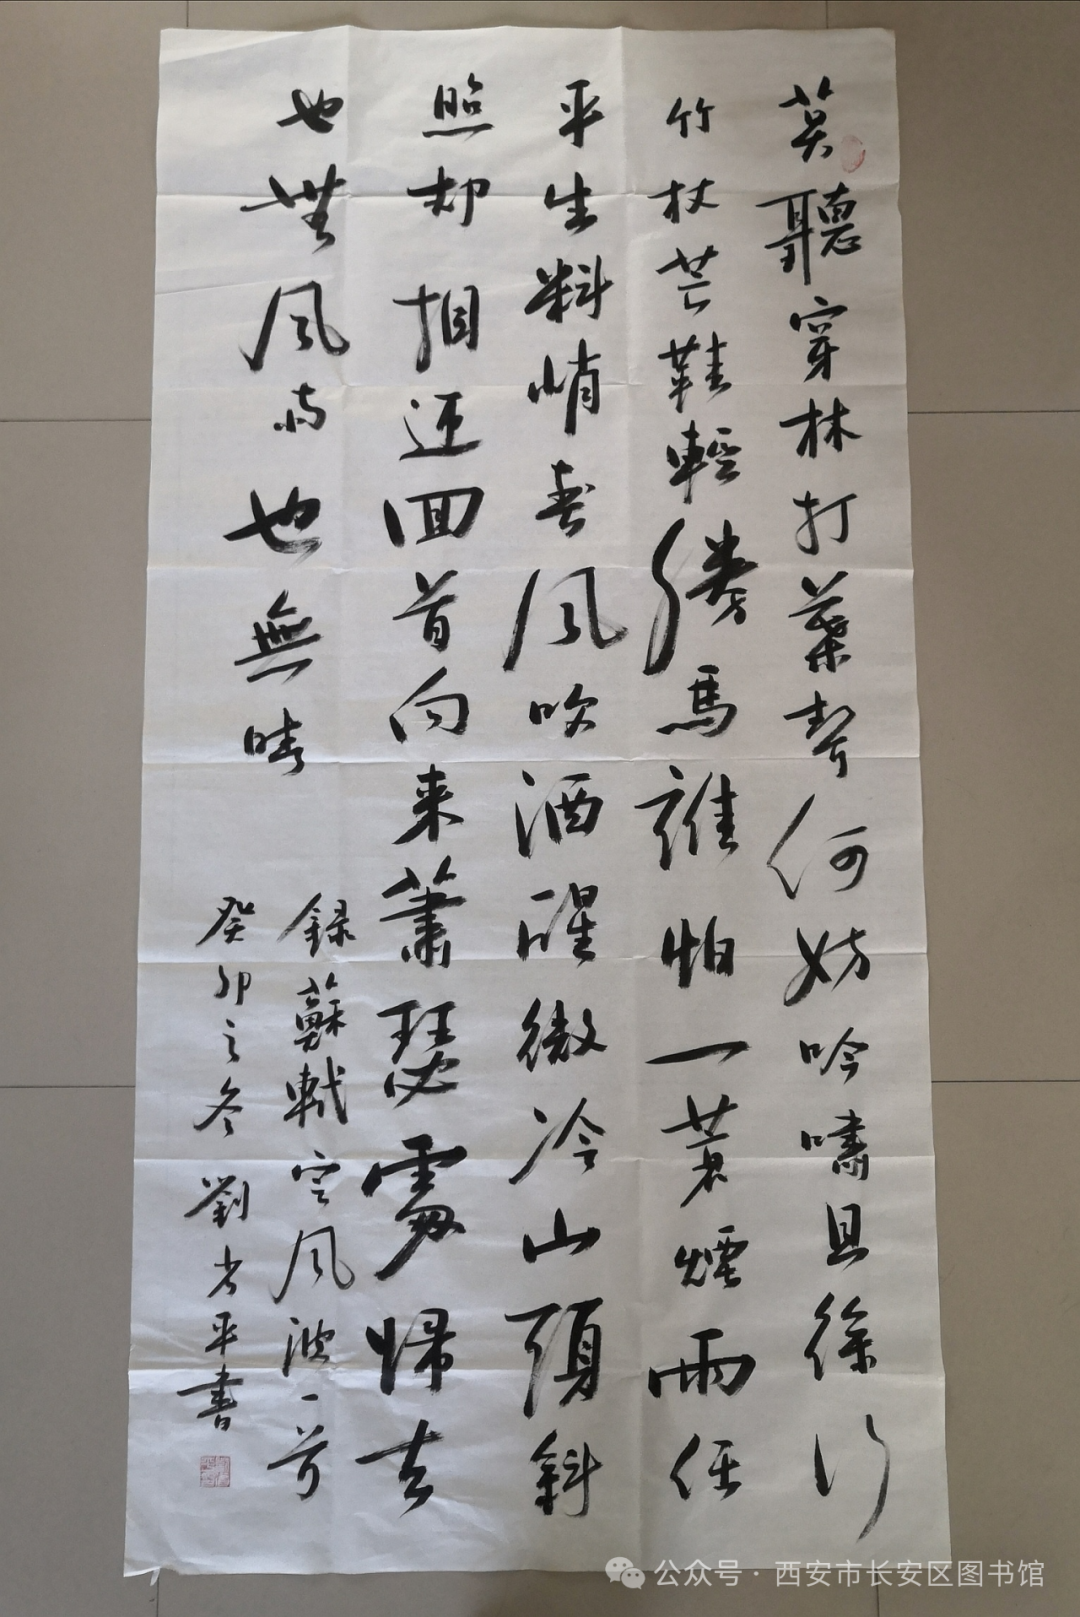 莫聽穿林打葉聲何妨吟嘯且徐行
竹杖芒鞋輕勝馬誰怕一蓑煙雨任
平生料峭春風吹酒醒微冷山頭斜
照却相迎回首向来蕭瑟處歸去
也無風雨也無晴
録蘇軾定風波一首
癸卯之冬劉少平書
公众号·西安市长安区图书馆